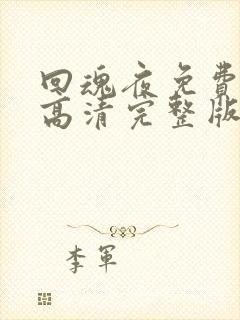 回魂夜免費
高清完整版
李軍